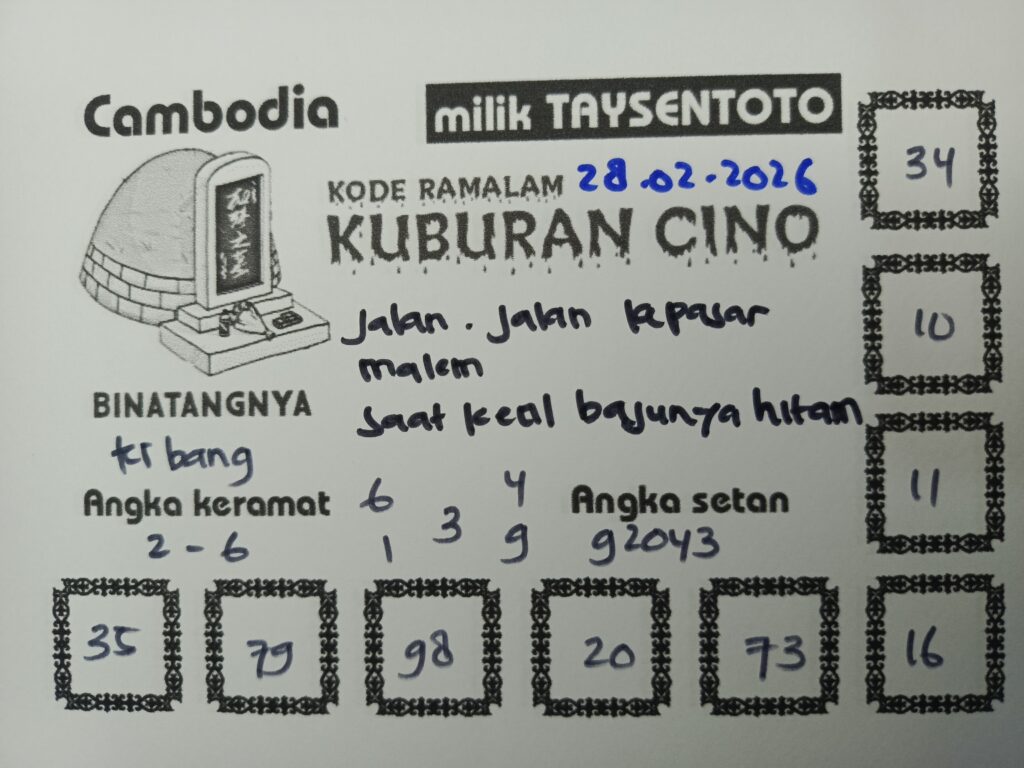 Cambodia
milik TAYSENTOTO
KODE RAMALAM 28.02.2026
KUBURAN CINO
Jalan. Jalan kepasar
malem
saat kecil bajunya hitam
BINATANGNYA
bang
Angka keramat
2 - 6
6 4
3
1 9
Angka setan
92043
34
10
11
35 79 98 20 73 16